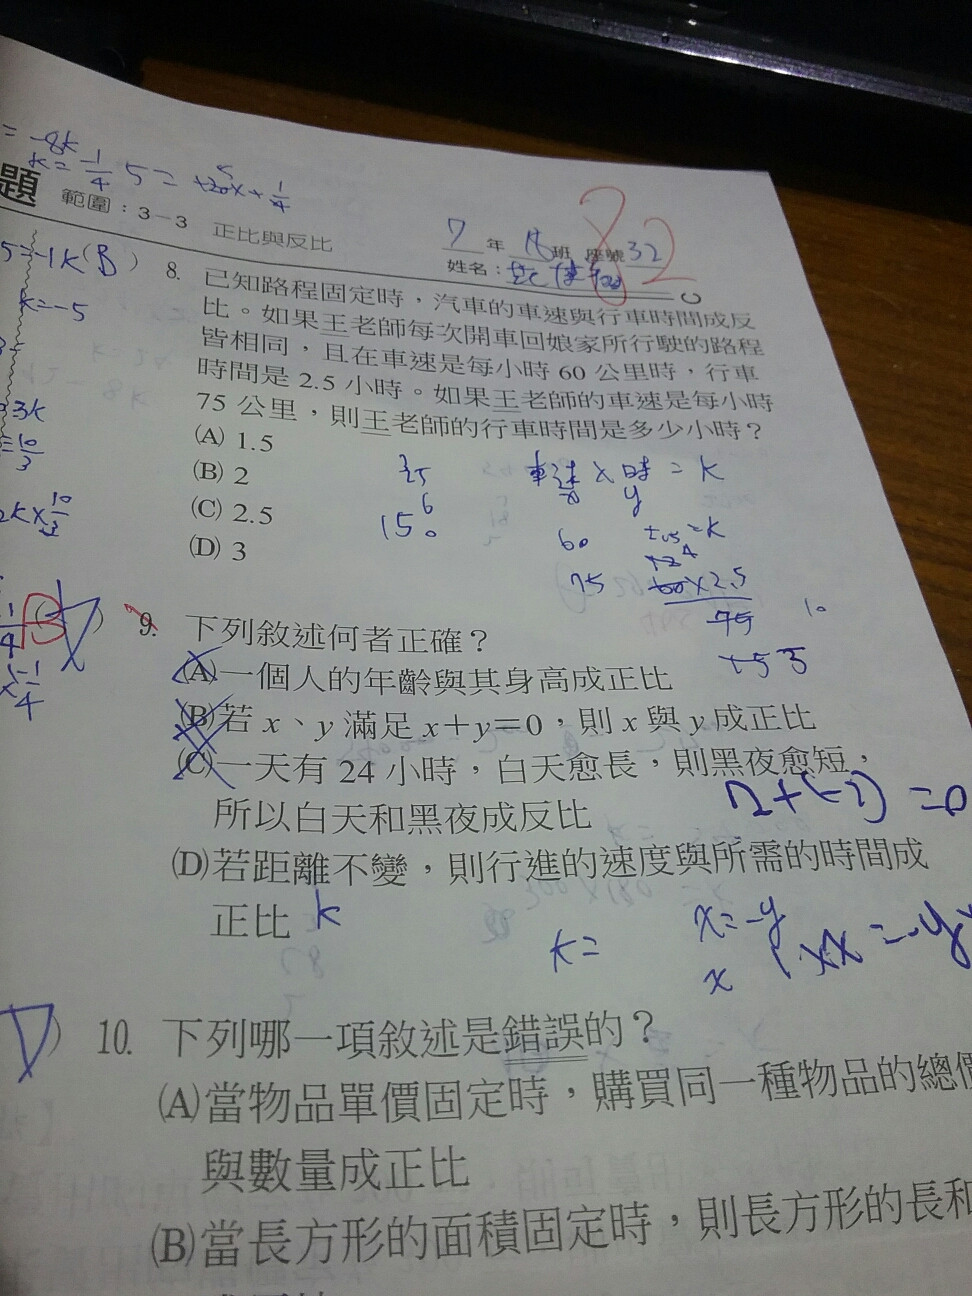 = -8k
k = -1/4 5 =
題 範圍：3－3 正比與反比
7 年 班 座號 32
姓名：
82
5 = -1k (B)
k = -5
8. 已知路程固定時，汽車的車速與行車時間成反
比。如果王老師每次開車回娘家所行駛的路程
皆相同，且在車速是每小時 60 公里時，行車
時間是 2.5 小時。如果王老師的車速是每小時
75 公里，則王老師的行車時間是多少小時？
(A) 1.5
(B) 2
(C) 2.5
(D) 3
3k
= 10/3
車速 × 時 = k
x y
150
60
75 60×2.5
75
10
9. 下列敘述何者正確？
(A)一個人的年齡與其身高成正比
(B)若 x、y 滿足 x＋y＝0，則 x 與 y 成正比
(C)一天有 24 小時，白天愈長，則黑夜愈短，
所以白天和黑夜成反比
2+(-2) = 0
(D)若距離不變，則行進的速度與所需的時間成
正比 k
k =
x = -y
x
10. 下列哪一項敘述是錯誤的？
(A)當物品單價固定時，購買同一種物品的總價
與數量成正比
(B)當長方形的面積固定時，則長方形的長和